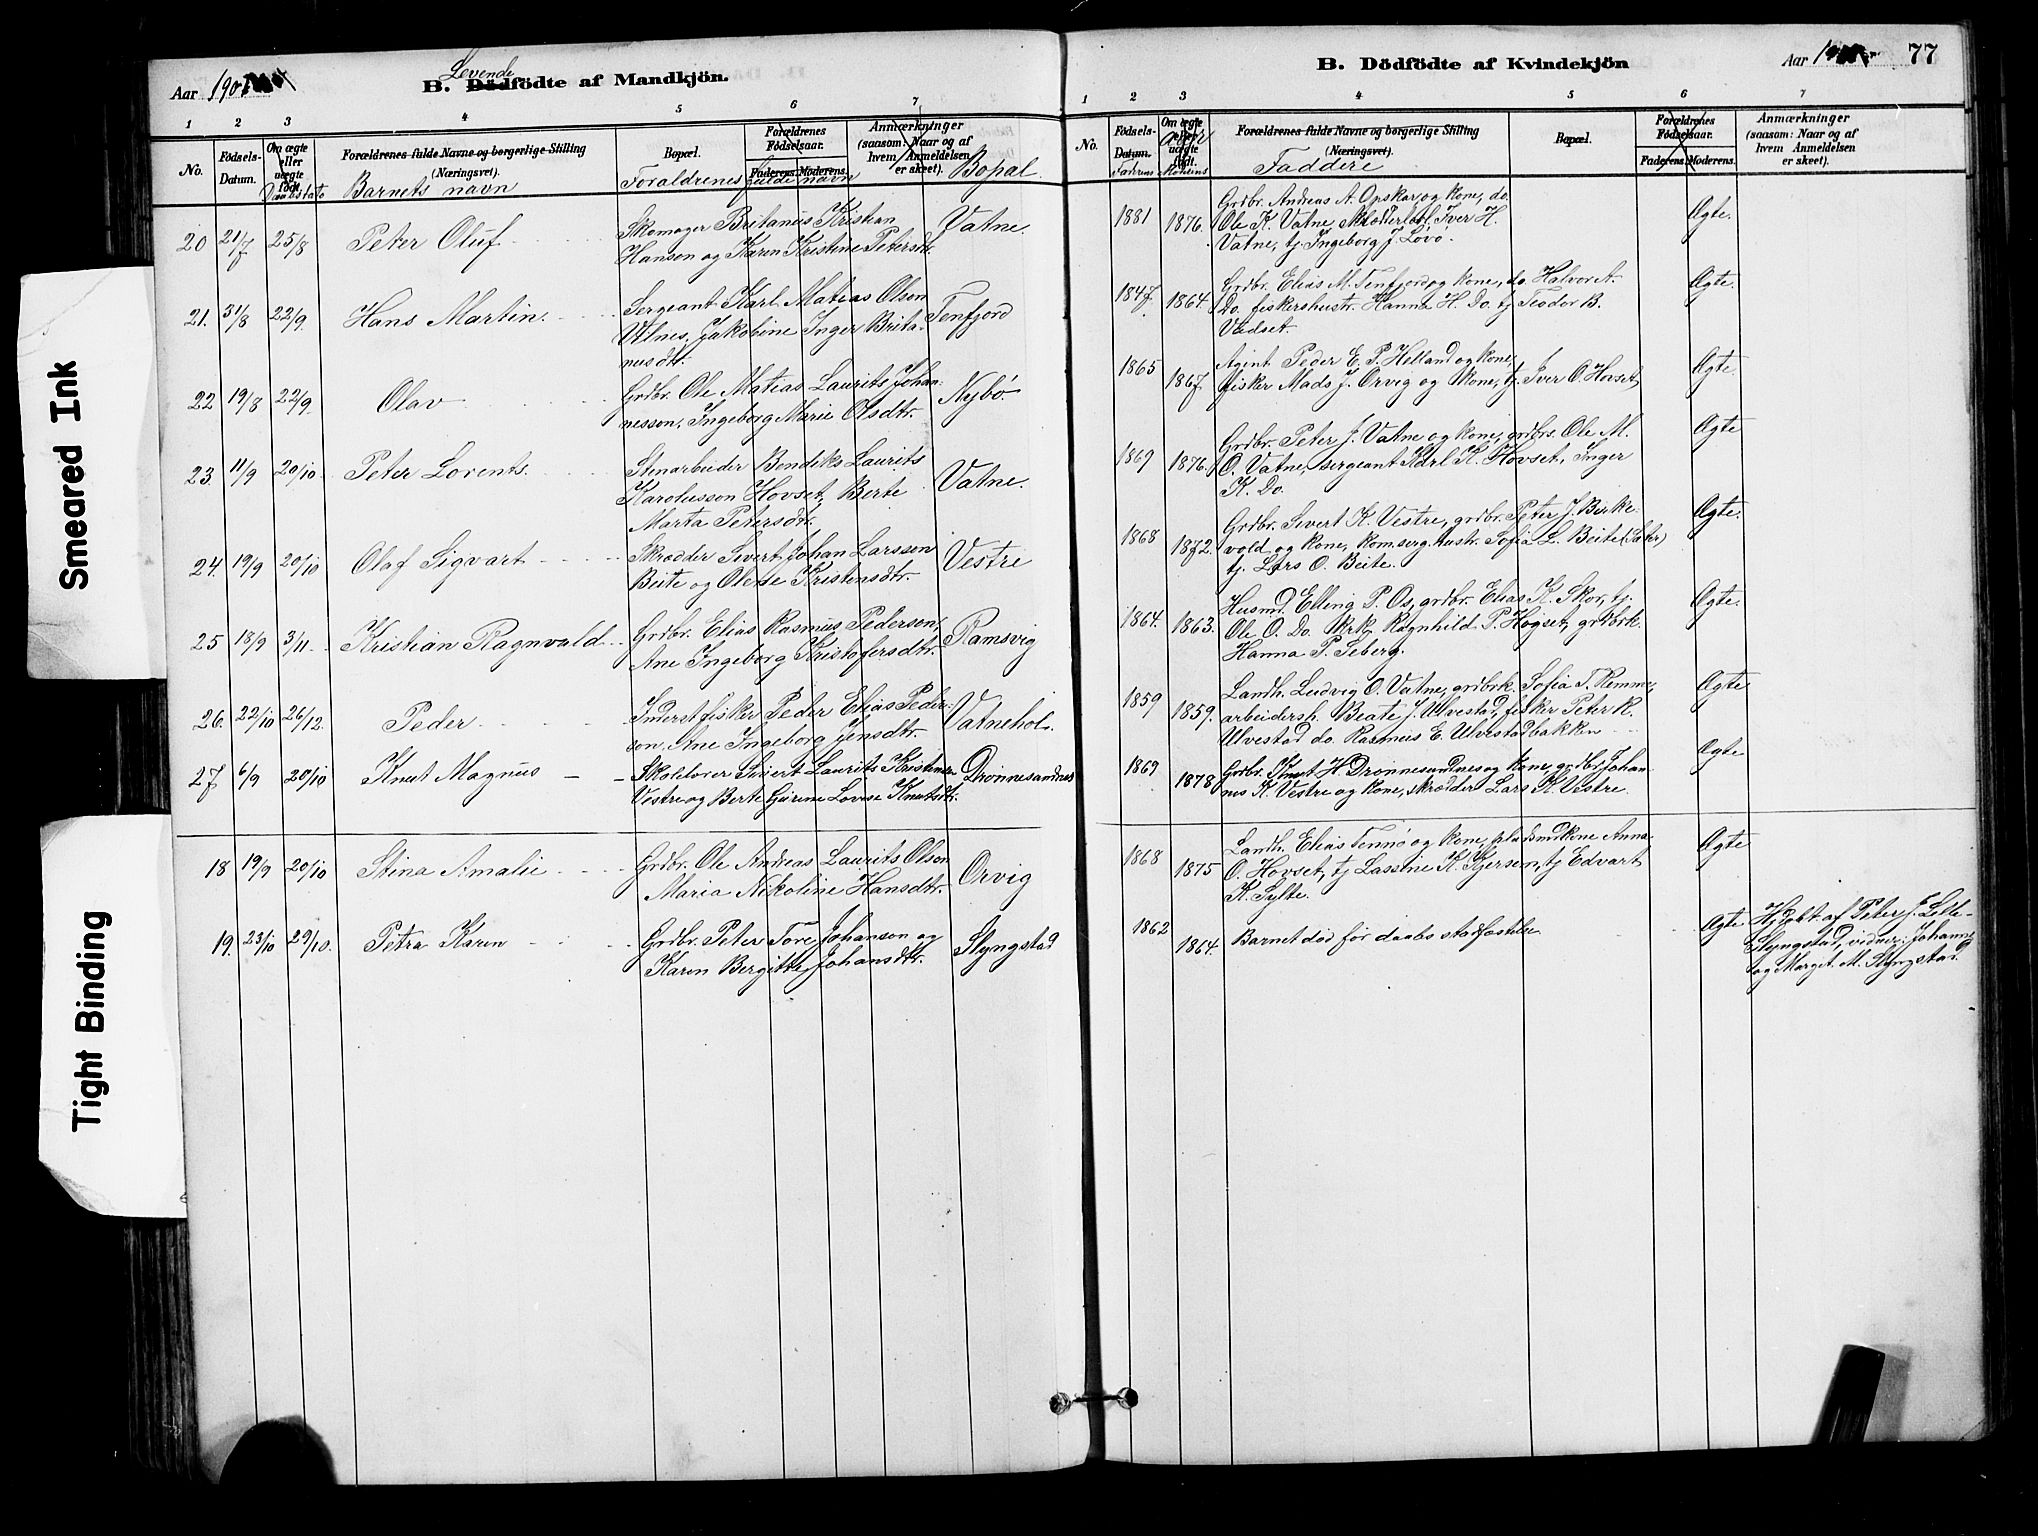 Smeared Ink
Tight Binding
Aar 190
Levende
B. Dödfödte af Mandkjön.
1 2 3 4 5 6 7
No.
Födsels-
Datum.
Om ægte
eller
uægte
født.
Daabs
Forældrenes fulde Navne og borgerlige Stilling
(Næringsvei).
Barnets navn
Bopæl.
Foraldrenes fulde navn
Forældrenes
Födselsaar.
Faderens. Moderens.
Anmærkninger
(saasom: Naar og af
hvem Anmeldelsen
er skeet).
Bopal.
20 21/7 25/8 Peter Oluf
Skomager Britanus Kristian
Hanson og Karen Kristine Petersdt.
Vatne.
21. 31/8 22/9 Hans Martin.
Sergeant Karl Matias Olson
Ulnes, Jakobine Inger Brita-
nusdtr.
Tenfjord
22 19/8 22/9. Olav
Grdbr. Ole Matias Laurits Johan-
nesson, Ingeborg Marie Olsdtr.
Nybø
23. 11/9 20/10 Peter Lorents.
Stenarbeider Bendiks Laurits
Karolusson Hovset, Berte
Marta Petersdtr.
Vatne.
24. 19/9 20/10 Olaf Sigvart
Skrædder Sivert Johan Larssen
Beite og Olene Kristensdtr.
Vestre
25 18/9 3/11 Kristian Ragnvald
Grdbr. Elias Rasmus Pederson,
Ane Ingeborg Kristofersdtr.
Ramsvig
26. 22/10 26/12. Peder
Inderst fisker Peder Elias Peder-
son, Ane Ingeborg Jensdtr.
Vatnehol.
27 6/9 20/10 Knut Magnus
Skolelærer Sivert Laurits Kristensen
Vestre og Berte Gurine Lovise Knutsdtr.
Drønnesundnes
18 19/9 20/10 Stina Amalie
Grdbr. Ole Andreas Laurits Olson
Maria Nikoline Hansdtr.
Orvig
19. 23/10 29/10. Petra Karen
Grdbr. Peter Tore Johanson og
Karen Bergitte Johansdtr.
Slyngstad
B. Dödfödte af Kvindekjön
Aar 1 77
1 2 3 4 5 6 7
No.
Födsels-
Datum.
Faderens
Om ægte
eller
uægte
født.
Moderens
Forældrenes fulde Navne og borgerlige Stilling
(Næringsvei).
Faddere
Bopæl.
Forældrenes
Födselsaar.
Faderens. Moderens.
Anmærkninger
(saasom: Naar og af
hvem Anmeldelsen
er skeet).
1881 1876.
Grdbr. Andreas A. Opskar og kone, do.
Ole K. Vatne, Iver H.
Vatne, tj Ingeborg J. Løvø.
Ægte.
1847. 1864.
Grdbr. Elias M. Tenfjord og kone, do. Halvor A.
Do. fiskershustr. Hanna H. Do. tj Teodor B.
Vadset.
Ægte.
1865 1867.
Agent Peder E. P. Helland og kone,
fisker Mads J. Orvig og kone, tj. Iver O. Hovset
Ægte.
1869 1876.
Grdbr. Peter J. Vatne og kone, grdbrs. Ole M.
O. Vatne, sergeant Karl K. Hovset, Inger
K. Do.
Ægte
1868 1872.
Grdbr. Sivert K. Vestre, grdbr. Peter J. Birke-
vold og kone, komserg. hustr. Sofia L. Beite (Sæter)
tj. Lars O. Beite.
Ægte.
1864. 1863.
Husmd. Elling P. Os, grdbr. Elias K. Skor, tj.
Ole O. Do. Ragnhild P. Høgset, grdbrk.
Hanna P. Seberg.
Ægte.
1859 1859.
Landh. Ludvig O. Vatne, grdbrk. Sofia T. Remme,
arbeidersh. Beate J. Ulvestad, fisker Peter R.
Ulvestad do. Rasmus E. Ulvestadbakken
Ægte
1869 1878
Grdbr. Knut H. Drønnesundnes og kone, grdbr. Johan-
nes K. Vestre og kone, skrædder Lars K. Vestre.
Ægte
1868 1875
Landh. Elias Tennø og kone, pladsmdkone Anna
O. Hovset, tj Lassine K. Gjersen, tj Edvart
K. Sylte.
Ægte
1862 1864.
Barnet død før daabs stadfæstelse
Ægte
Hjdøbt. af Peter J. Lille-
Slyngstad, vidner: Johanne
og Marget M. Slyngstad.